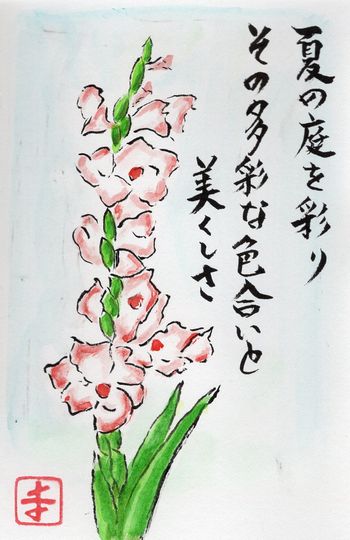 夏の庭を彩り
その多彩な色合いと
美くしさ